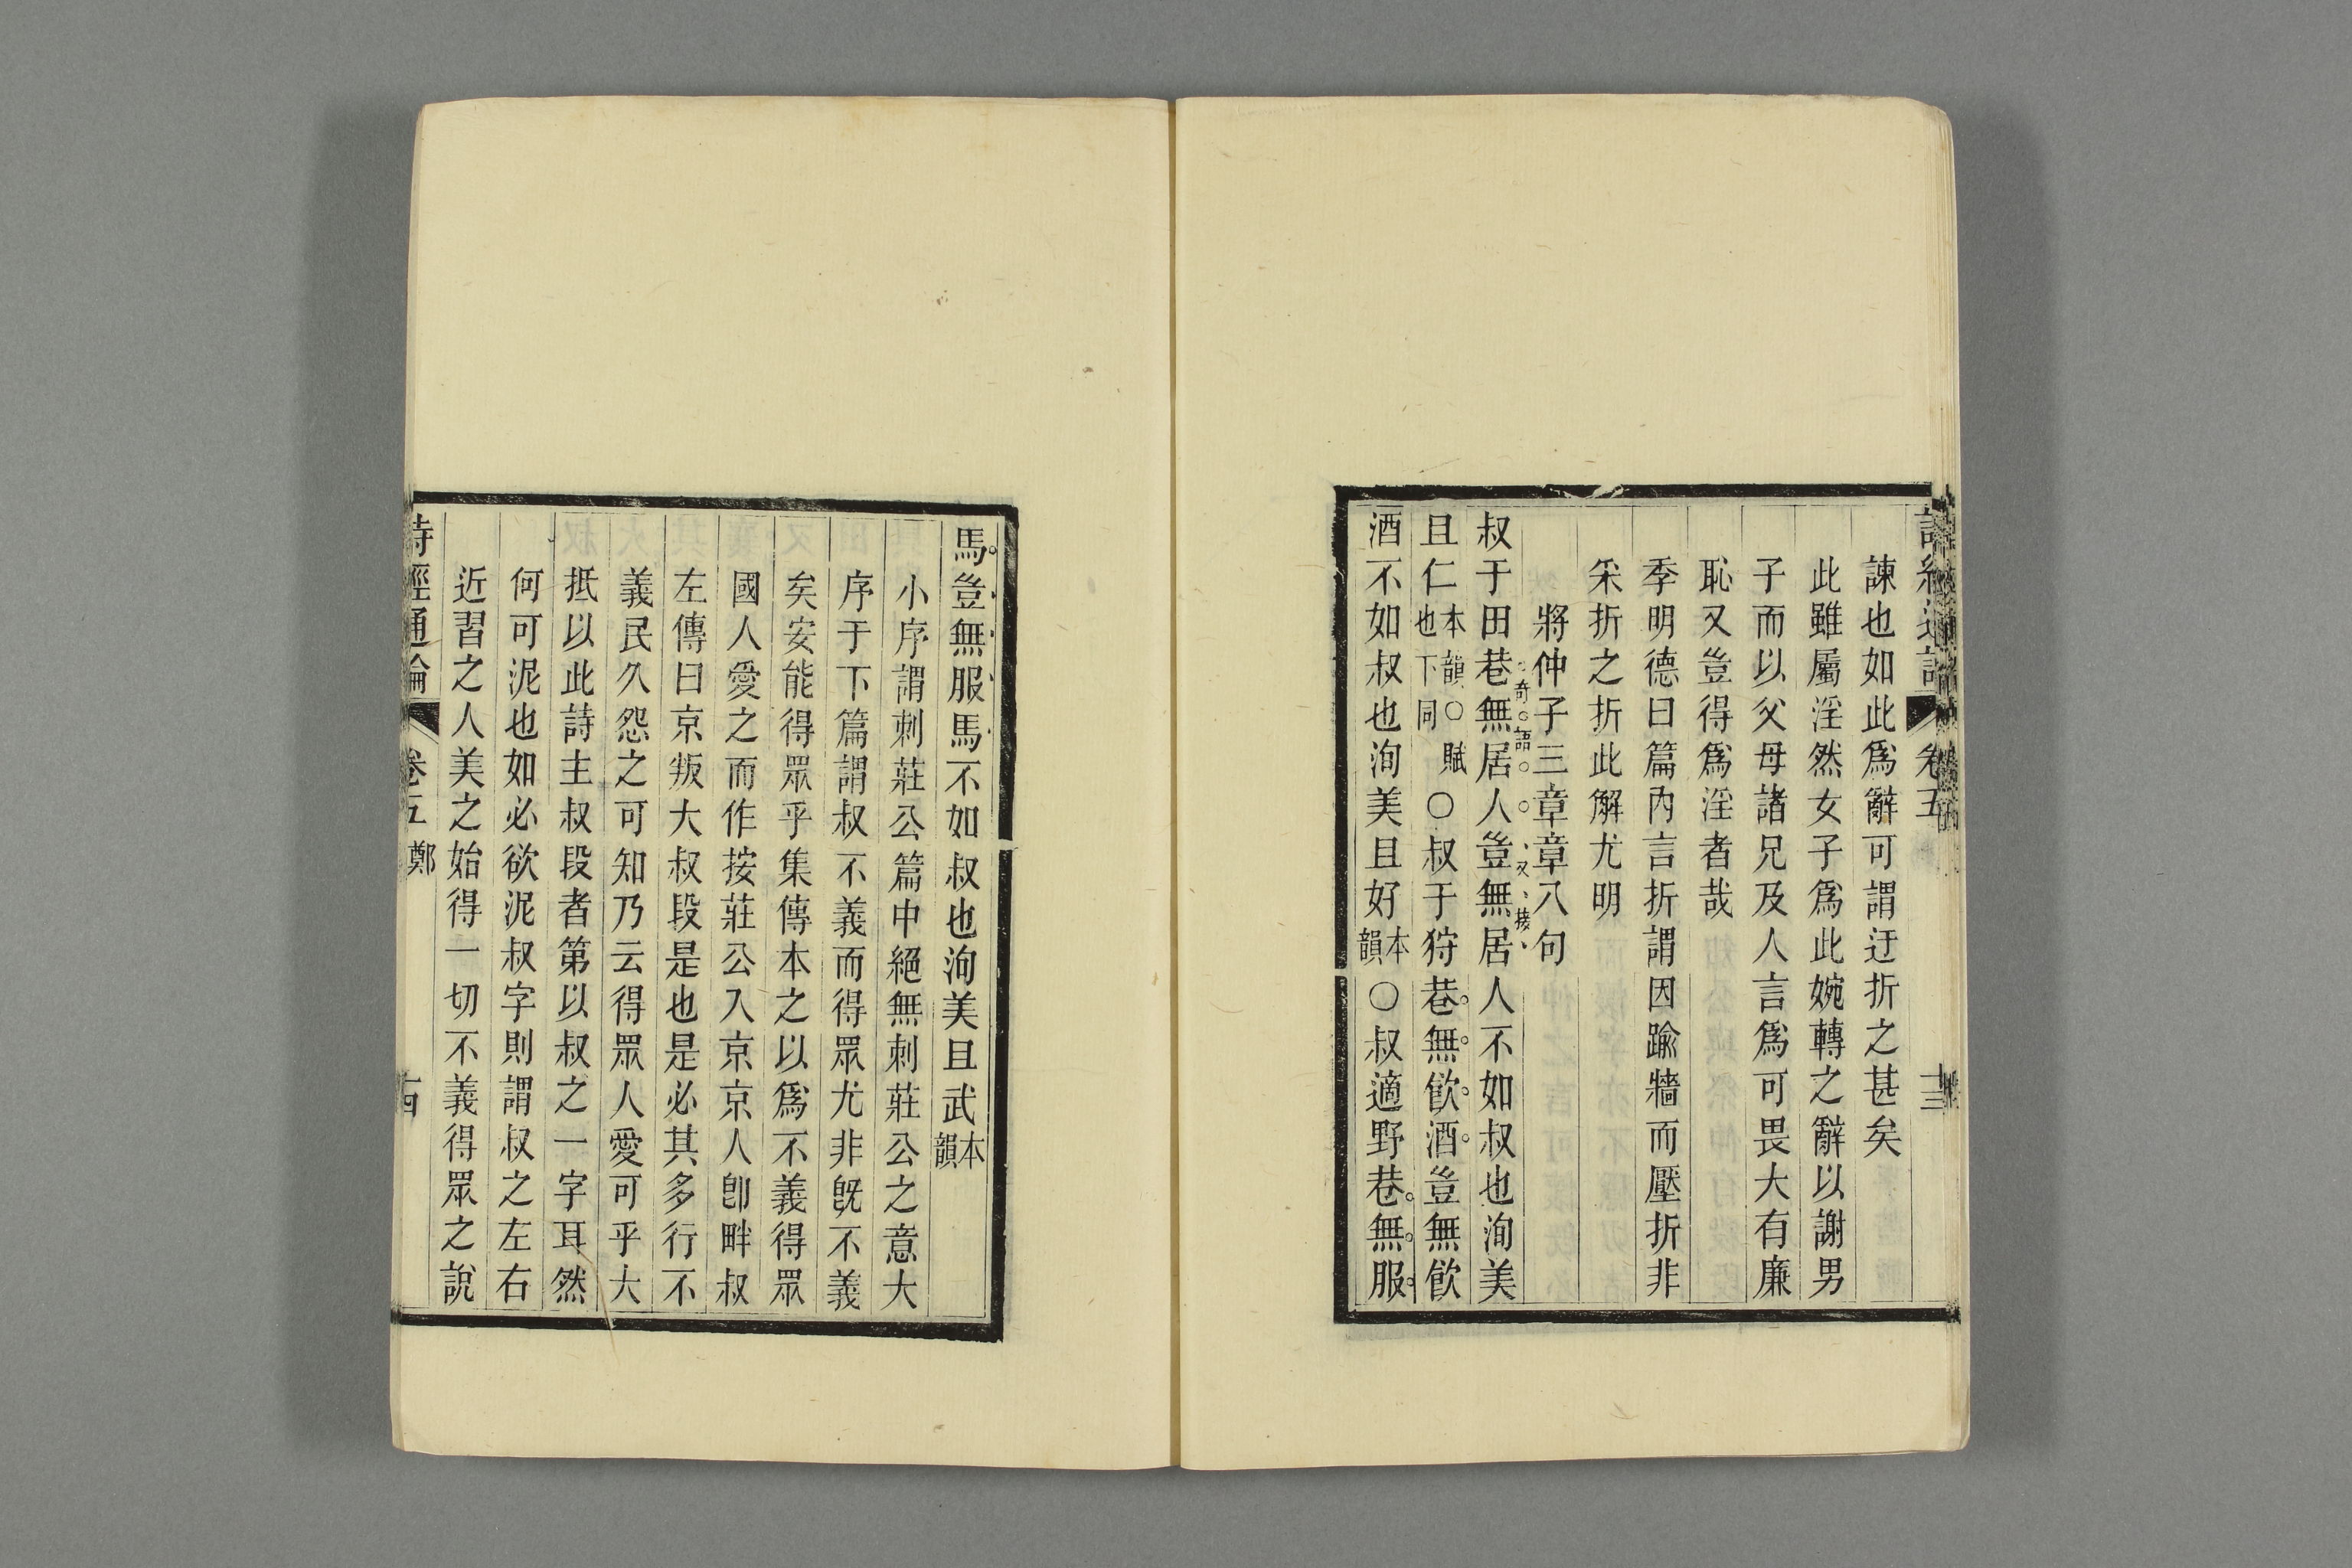 詩經通論 卷五 十三
諫也如此爲辭可謂迂折之甚矣
此雖屬淫然女子爲此婉轉之辭以謝男
子而以父母諸兄及人言爲可畏大有廉
恥又豈得爲淫者哉
季明德曰篇內言折謂因踰牆而壓折非
采折之折此解尤明
將仲子三章章八句
叔于田巷無居人豈無居人不如叔也洵美
奇語 又接
且仁本韻○賦也下同○叔于狩巷無飮酒豈無飮
酒不如叔也洵美且好本韻○叔適野巷無服
馬豈無服馬不如叔也洵美且武本韻
小序謂刺莊公篇中絕無刺莊公之意大
序于下篇謂叔不義而得眾尤非旣不義
矣安能得眾乎集傳本之以爲不義得眾
國人愛之而作按莊公入京京人卽畔叔
左傳曰京叛大叔段是也是必其多行不
義民久怨之可知乃云得眾人愛可乎大
抵以此詩主叔段者第以叔之一字耳然
何可泥也如必欲泥叔字則謂叔之左右
近習之人美之始得一切不義得眾之說
詩經通論 卷五 鄭 十四